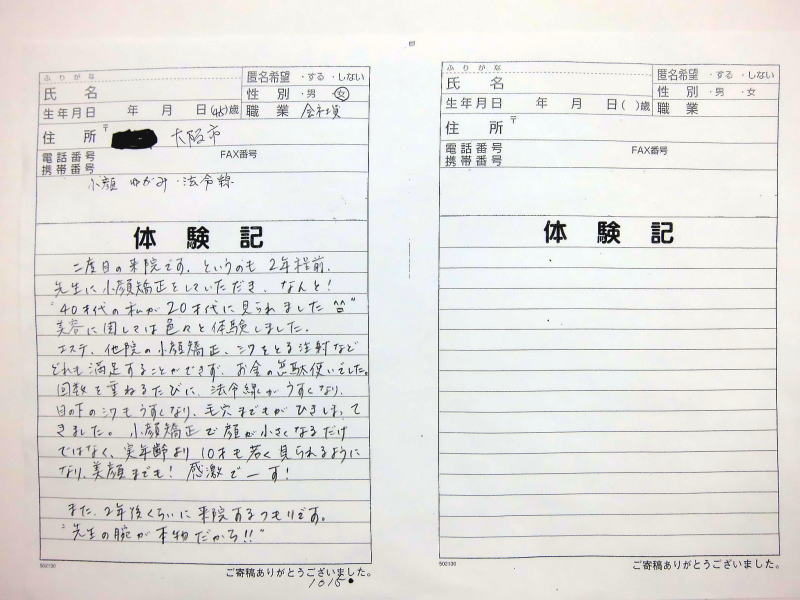 ふりがな
氏 名
匿名希望 ・する ・しない
性 別 ・男 ・女
生年月日 年 月 日(45)歳
職 業 会社員
住 所 〒 大阪市
電話番号 FAX番号
携帯番号
小顔 ゆがみ・法令線
体 験 記
二度目の来院です。というのも2年程前、
先生に小顔矯正をしていただき、なんと!
"40才代の私が20才代に見られました^^"
美容に関しては色々と体験しました。
エステ、他院の小顔矯正、シワをとる注射など
どれも満足することができず、お金の無駄使いでした。
回数を重ねるたびに、法令線がうすくなり、
目の下のシワもうすくなり、毛穴までもがひきしまって
きました。小顔矯正で顔が小さくなるだけ
ではなく、実年齢より10才も若く見られるように
なり、美顔までも!感激でーす!
また、2年後くらいに来院するつもりです。
"先生の腕が本物だから!!"
502130
ご寄稿ありがとうございました。
1015
ふりがな
氏 名
匿名希望 ・する ・しない
性 別 ・男 ・女
生年月日 年 月 日( )歳
職 業
住 所 〒
電話番号 FAX番号
携帯番号
体 験 記
502130
ご寄稿ありがとうございました。